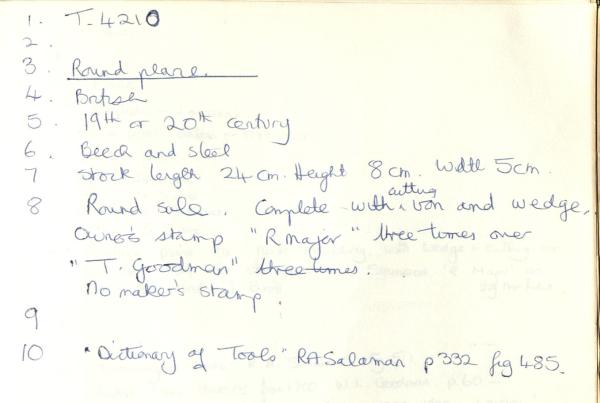 1. T.4210
2.
3. Round plane.
4. British
5. 19th or 20th century
6. Beech and steel
7 Stock length 24cm. Height 8cm. Width 5cm.
8 Round sole. Complete with cutting iron and wedge.
Owner's stamp "R Major" three times over
"T. Goodman" three times.
No maker's stamp.
9
10 "Dictionary of Tools" RA Salaman p332 fig 485.